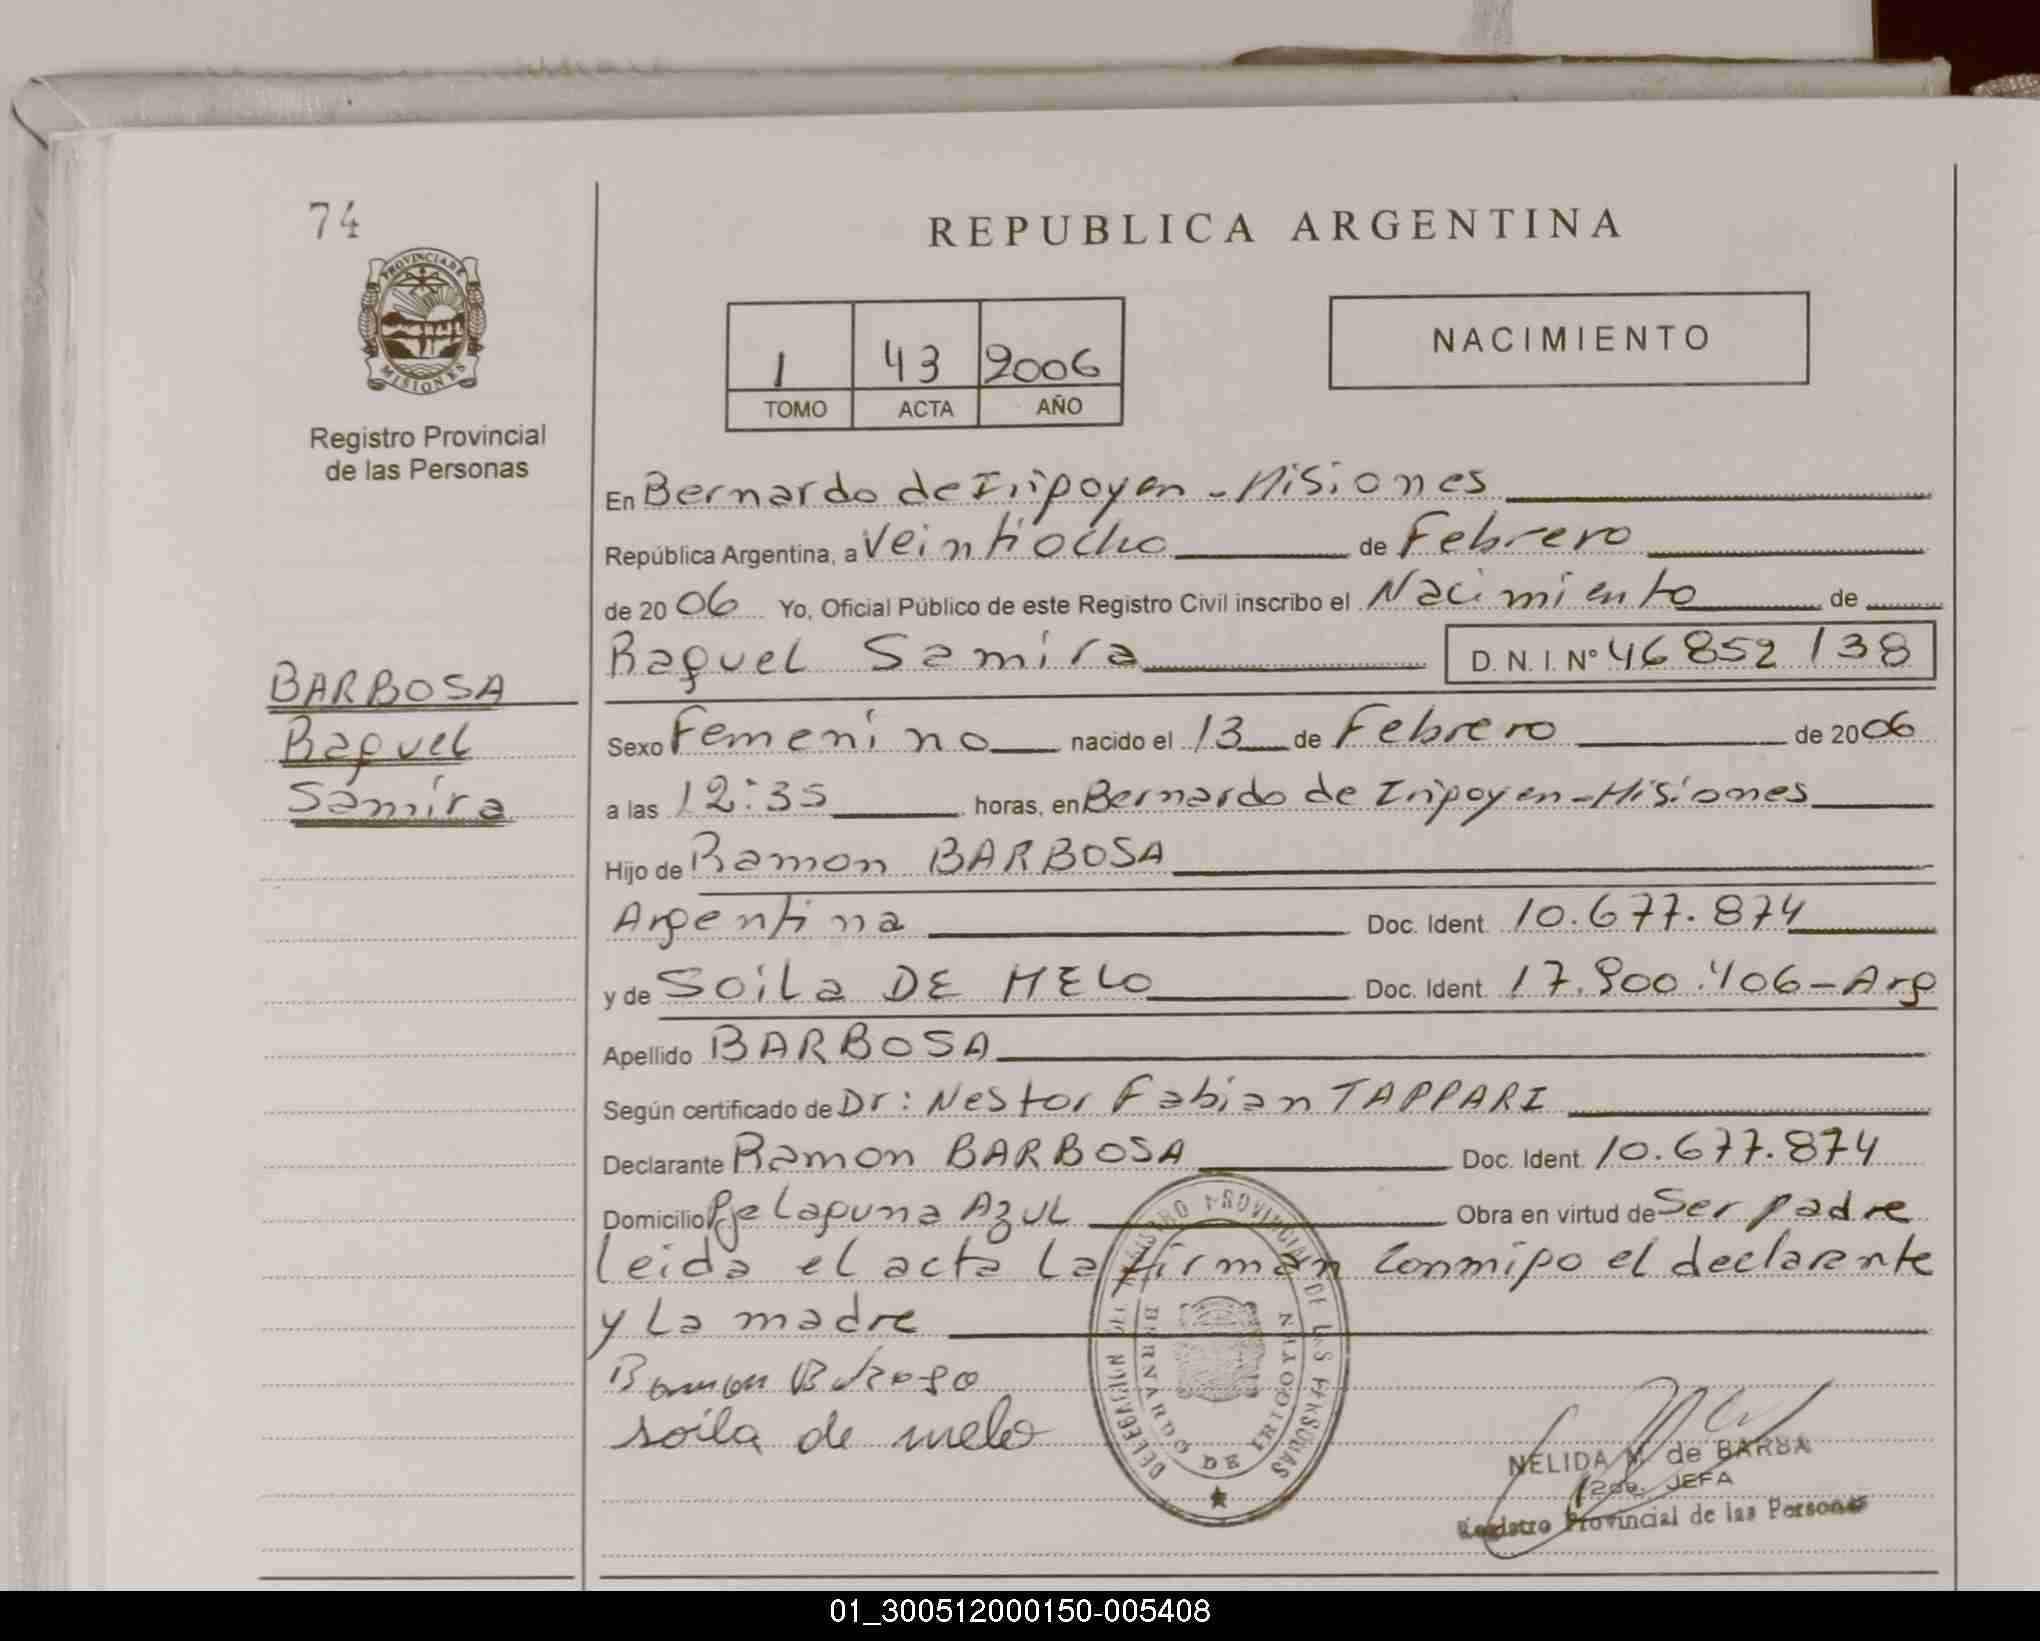 74
PROVINCIA DE
MISIONES
Registro Provincial
de las Personas
BARBOSA
Raquel
Samira
REPUBLICA ARGENTINA
1 43 2006
TOMO ACTA AÑO
NACIMIENTO
En Bernardo de Irigoyen - Misiones
República Argentina, a Veintiocho de Febrero
de 2006 Yo, Oficial Público de este Registro Civil inscribo el Nacimiento de
Raquel Samira D. N. I. Nº 46 852 138
Sexo Femenino nacido el 13 de Febrero de 2006
a las 12:35 horas, en Bernardo de Irigoyen - Misiones
Hijo de Ramon BARBOSA
Argentina Doc. Ident. 10.677.874
y de Soila DE MELO Doc. Ident. 17.900.406 - Arg
Apellido BARBOSA
Según certificado de Dr: Nestor Fabian TAPPARI
Declarante Ramon BARBOSA Doc. Ident. 10.677.874
Domicilio Pje Laguna Azul Obra en virtud de Ser padre
Leida el acta la firman conmigo el declarante
y la madre
Ramon
soila de melo
DELEGACION DEL REGISTRO PROVINCIAL DE LAS PERSONAS
BERNARDO DE IRIGOYEN
NELIDA M. de BARBA
JEFA
Registro Provincial de las Personas
01_300512000150-005408